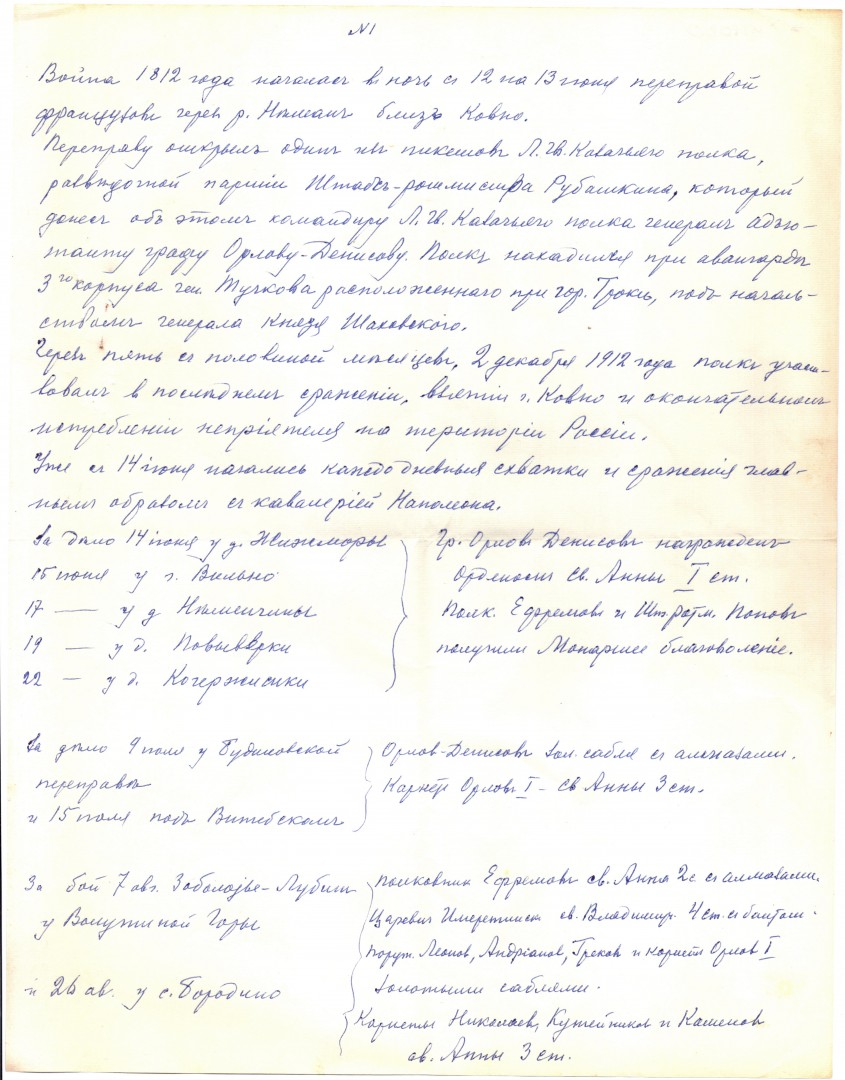 N1
Война 1812 года началась въ ночь съ 12 на 13 июня переправой
французовъ черезъ р. Нѣманъ близъ Ковно.
Переправу открылъ одинъ изъ пикетовъ Л. Гв. Казачьяго полка,
развѣдочной партіи Штабъ-ротмистра Рубашкина, который
донесъ объ этомъ командиру Л. Гв. Казачьяго полка генералъ адъю-
танту графу Орлову-Денисову. Полкъ находился при авангардѣ
3го корпуса ген. Тучкова расположеннаго при гор. Троки, подъ началь-
ствомъ генерала Князя Шаховского.
Черезъ пять съ половиной мѣсяцевъ, 2 декабря 1912 года полкъ участ-
вовалъ в послѣднемъ сраженіи, взятіи г. Ковно и окончательномъ
истребленіи непріятеля на територіи Россіи.
Уже съ 14 іюня начались каждодневныя схватки и сраженія глав-
нымъ образомъ съ кавалеріей Наполеона.
За дѣло 14 іюня у д. Жижморы
15 іюня у г. Вильно
17 — у д Нѣменчины
19 — у д.
22 — у д. Кочержишки
Гр. Орловъ Денисовъ награжденъ
Орденомъ Св. Анны I ст.
Полк. Ефремовъ и Шт. ротм. Поповъ
получили Монаршее благоволеніе.
За дѣло 9 июля у Будиловской
переправы
и 15 июля подъ Витебскомъ
Орлов-Денисовъ зол. сабля съ алмазами.
Карнетъ Орловъ I - Св Анны 3 ст.
За бой 7 авг. Заболотье-Лубино
у Валутиной Горы
и 26 ав. у с. Бородино
полковник Ефремовъ св. Анна 2с съ алмазами.
Царевич Имеретинск св. Владимир. 4 ст. съ бантом.
поруч. Леонов, Андріанов, Греков и корнетъ Орлов I
золотыми саблями.
Корнеты Николаев, Кутейников и Каменов
св. Анны 3 ст.